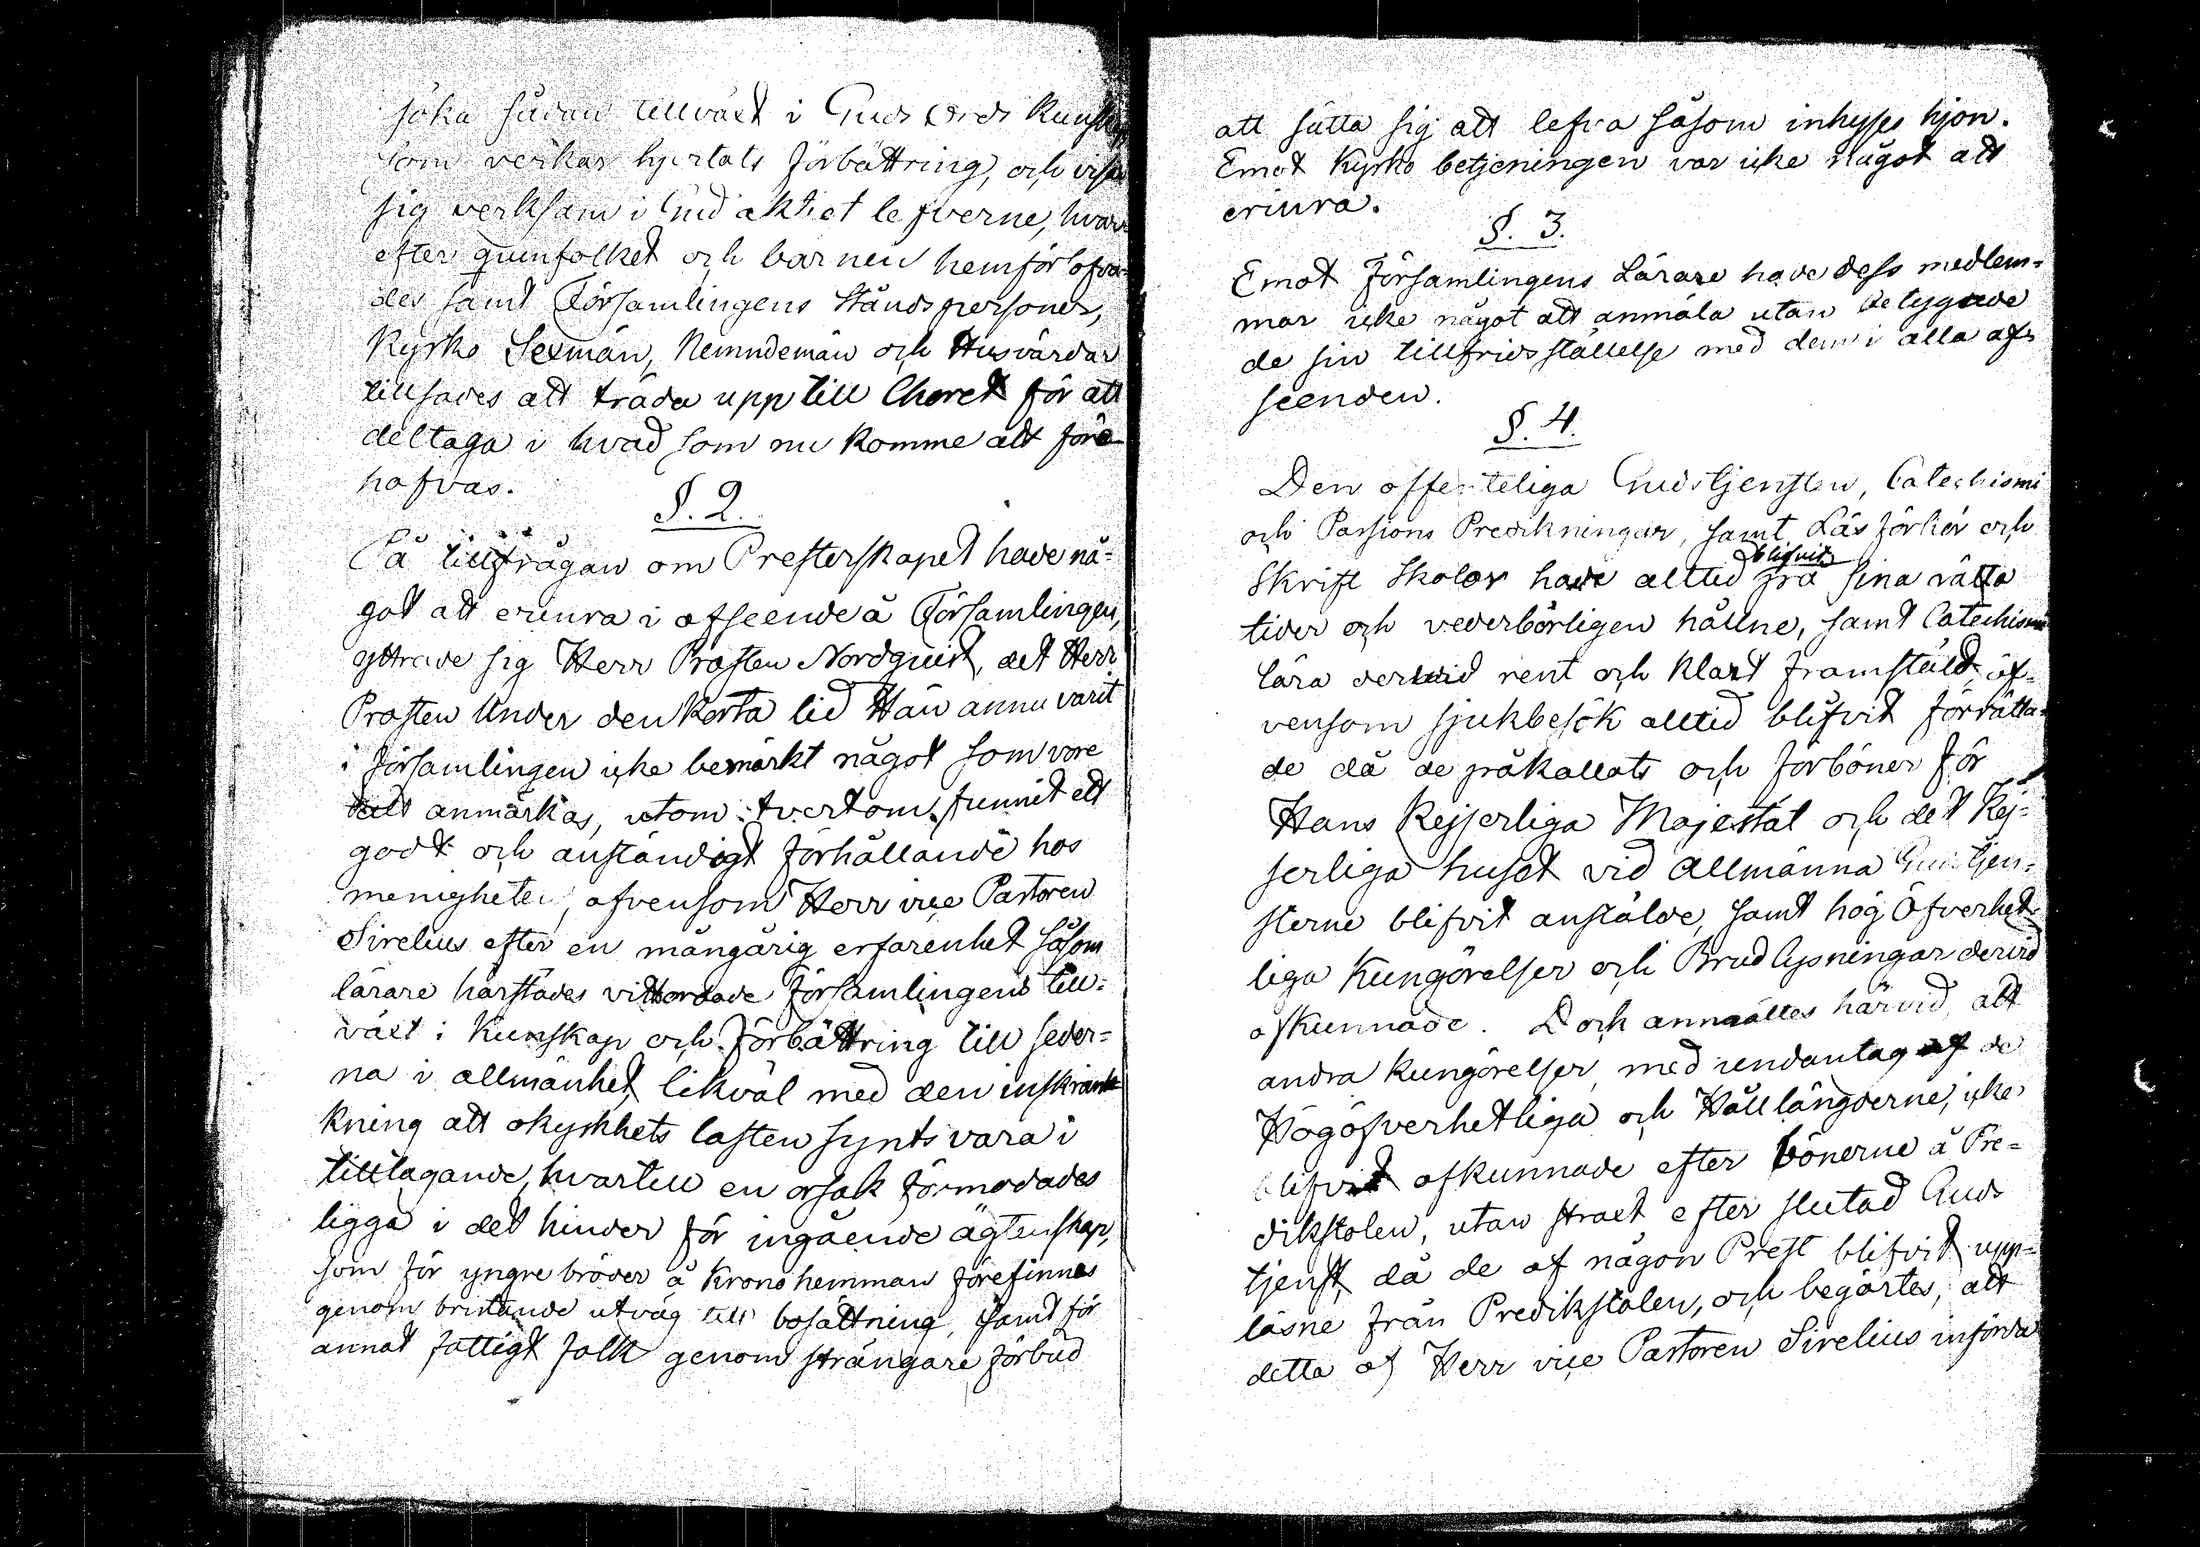 söka sådan tillväxt i Guds Ords Kunskap
som verkar hjertats förbättring, och visar
sig verksam i Gud aktiet lefverne, hvar
efter qvinfolket och barnen hemförlofva=
des samt Församlingens Ståndspersoner,
Kyrko Sexmän, Nemndemän och Husvärdar
tillsades att träda upp till Choret för att
deltaga i hvad som nu komme att före
hafvas.
§. 2.
På tillfrågan om Presterskapet hade nå=
got att erinra i afseende å Församlingen,
yttrade sig Herr Prosten Nordquist, det Herr
Prosten Under den korta tid Han ännu varit
i församlingen icke bemärkt något som vore
att anmärkas, utom tvertom funnit ett
godt och anständigt förhållande hos
menigheten, äfvensom Herr vice Pastoren
Sirelius efter en mångårig erfarenhet såsom
lärare härstädes vittordade församlingens till=
växt i Kunskap och förbättring till seder=
na i allmänhet, likväl med den inskränk
kning att okyskhets lasten synts vara i
tilltagande, hvartill en orsak förmodades
ligga i det hinder för ingående ägtenskap,
som för yngre bröder å Krono hemman förefinnes
genom bristande utväg till bosättning, samt för
annat fattigt folk genom strängare förbud
att sätta sig att lefva såsom inhyses hjon.
Emot Kyrko betjeningen var icke något att
erinra.
§. 3.
Emot församlingens Lärare hade dess medlem=
mar icke något att anmäla utan betygade
de sin tillfridsställelse med dem i alla af=
seenden.
§. 4.
Den offenteliga Gudstjensten, Catechismi
och Passions Predikningar, samt Läsförhör och
Skrift Skolor hade alltid blifvit på sina rätta
tider och vederbörligen hållne, samt Catechismi
lära dervid rent och klart framstäld, äf=
vensom sjukbesök alltid blifvit förrätta=
de då de påkallats och förböner för
Hans Kejserliga Majestät och det Kej=
serliga huset vid allmänna Gudstjen=
sterne blifvit anstälde, samt hög Öfverhet=
liga Kungörelser och Brud lysningar dervid
afkunnade. Dock anmältes härvid, att
andra kungörelser, med undantag af de
Högöfverhetliga och Hålllängderne, icke
blifvit afkunnade efter bönerne å Pre=
dikstolen, utan straxt efter slutad Guds
tjenst, då de af någon Prest blifvit upp=
läsne från Predikstolen, och begärtes, att
detta af Herr vice Pastoren Sirelius införda